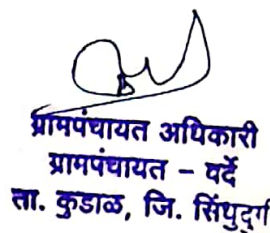 ग्रामपंचायत अधिकारी
ग्रामपंचायत - वर्दे
ता. कुडाळ, जि. सिंधुदुर्ग